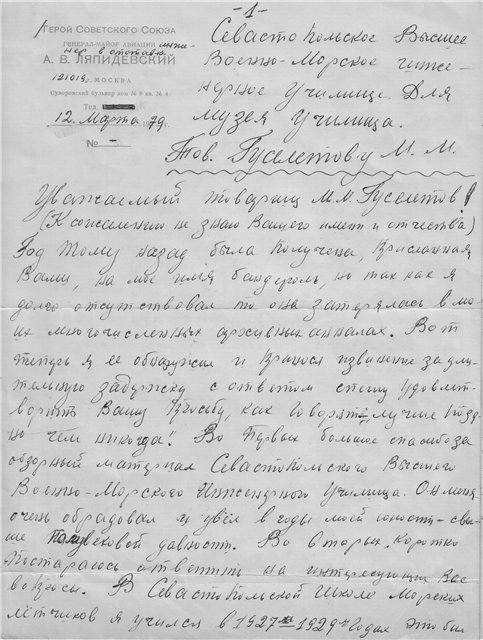 -1-
Герой Советского Союза
генерал-майор авиации инже-
нер в отставке
А. В. ЛЯПИДЕВСКИЙ
121019, МОСКВА
Суворовский бульвар дом № 9 кв. № 4.
Тел.
12. Марта 79г.
№ -
Севастопольское Высшее
Военно-Морское инже-
нерное училище. Для
музея Училища.
Тов. Гуселетову М. М.
Уважаемый товарищ М. М. Гуселетов!
(К сожалению не знаю Вашего имени и отчества)
Год тому назад была получена, присланная
Вами, на мое имя бандероль, но так как я
долго отсутствовал то она затерялась в мо-
их многочисленных архивных анналах. Вот
теперь я ее обнаружил и принося извинение за дли-
тельную задержку с ответом спешу удовлет-
ворить Вашу просьбу, как говорят "лучше позд-
но чем никогда". Во первых большое спасибо за
обзорный материал Севастопольского Высшего
Военно-Морского Инженерного Училища. Он меня
очень обрадовал и увёл в годы моей юности - свы-
ше полувековой давности. Во вторых, коротко
постараюсь ответить на интересующие Вас
вопросы. В Севастопольской Школе Морских
лётчиков я учился в 1927-1929 годах это был